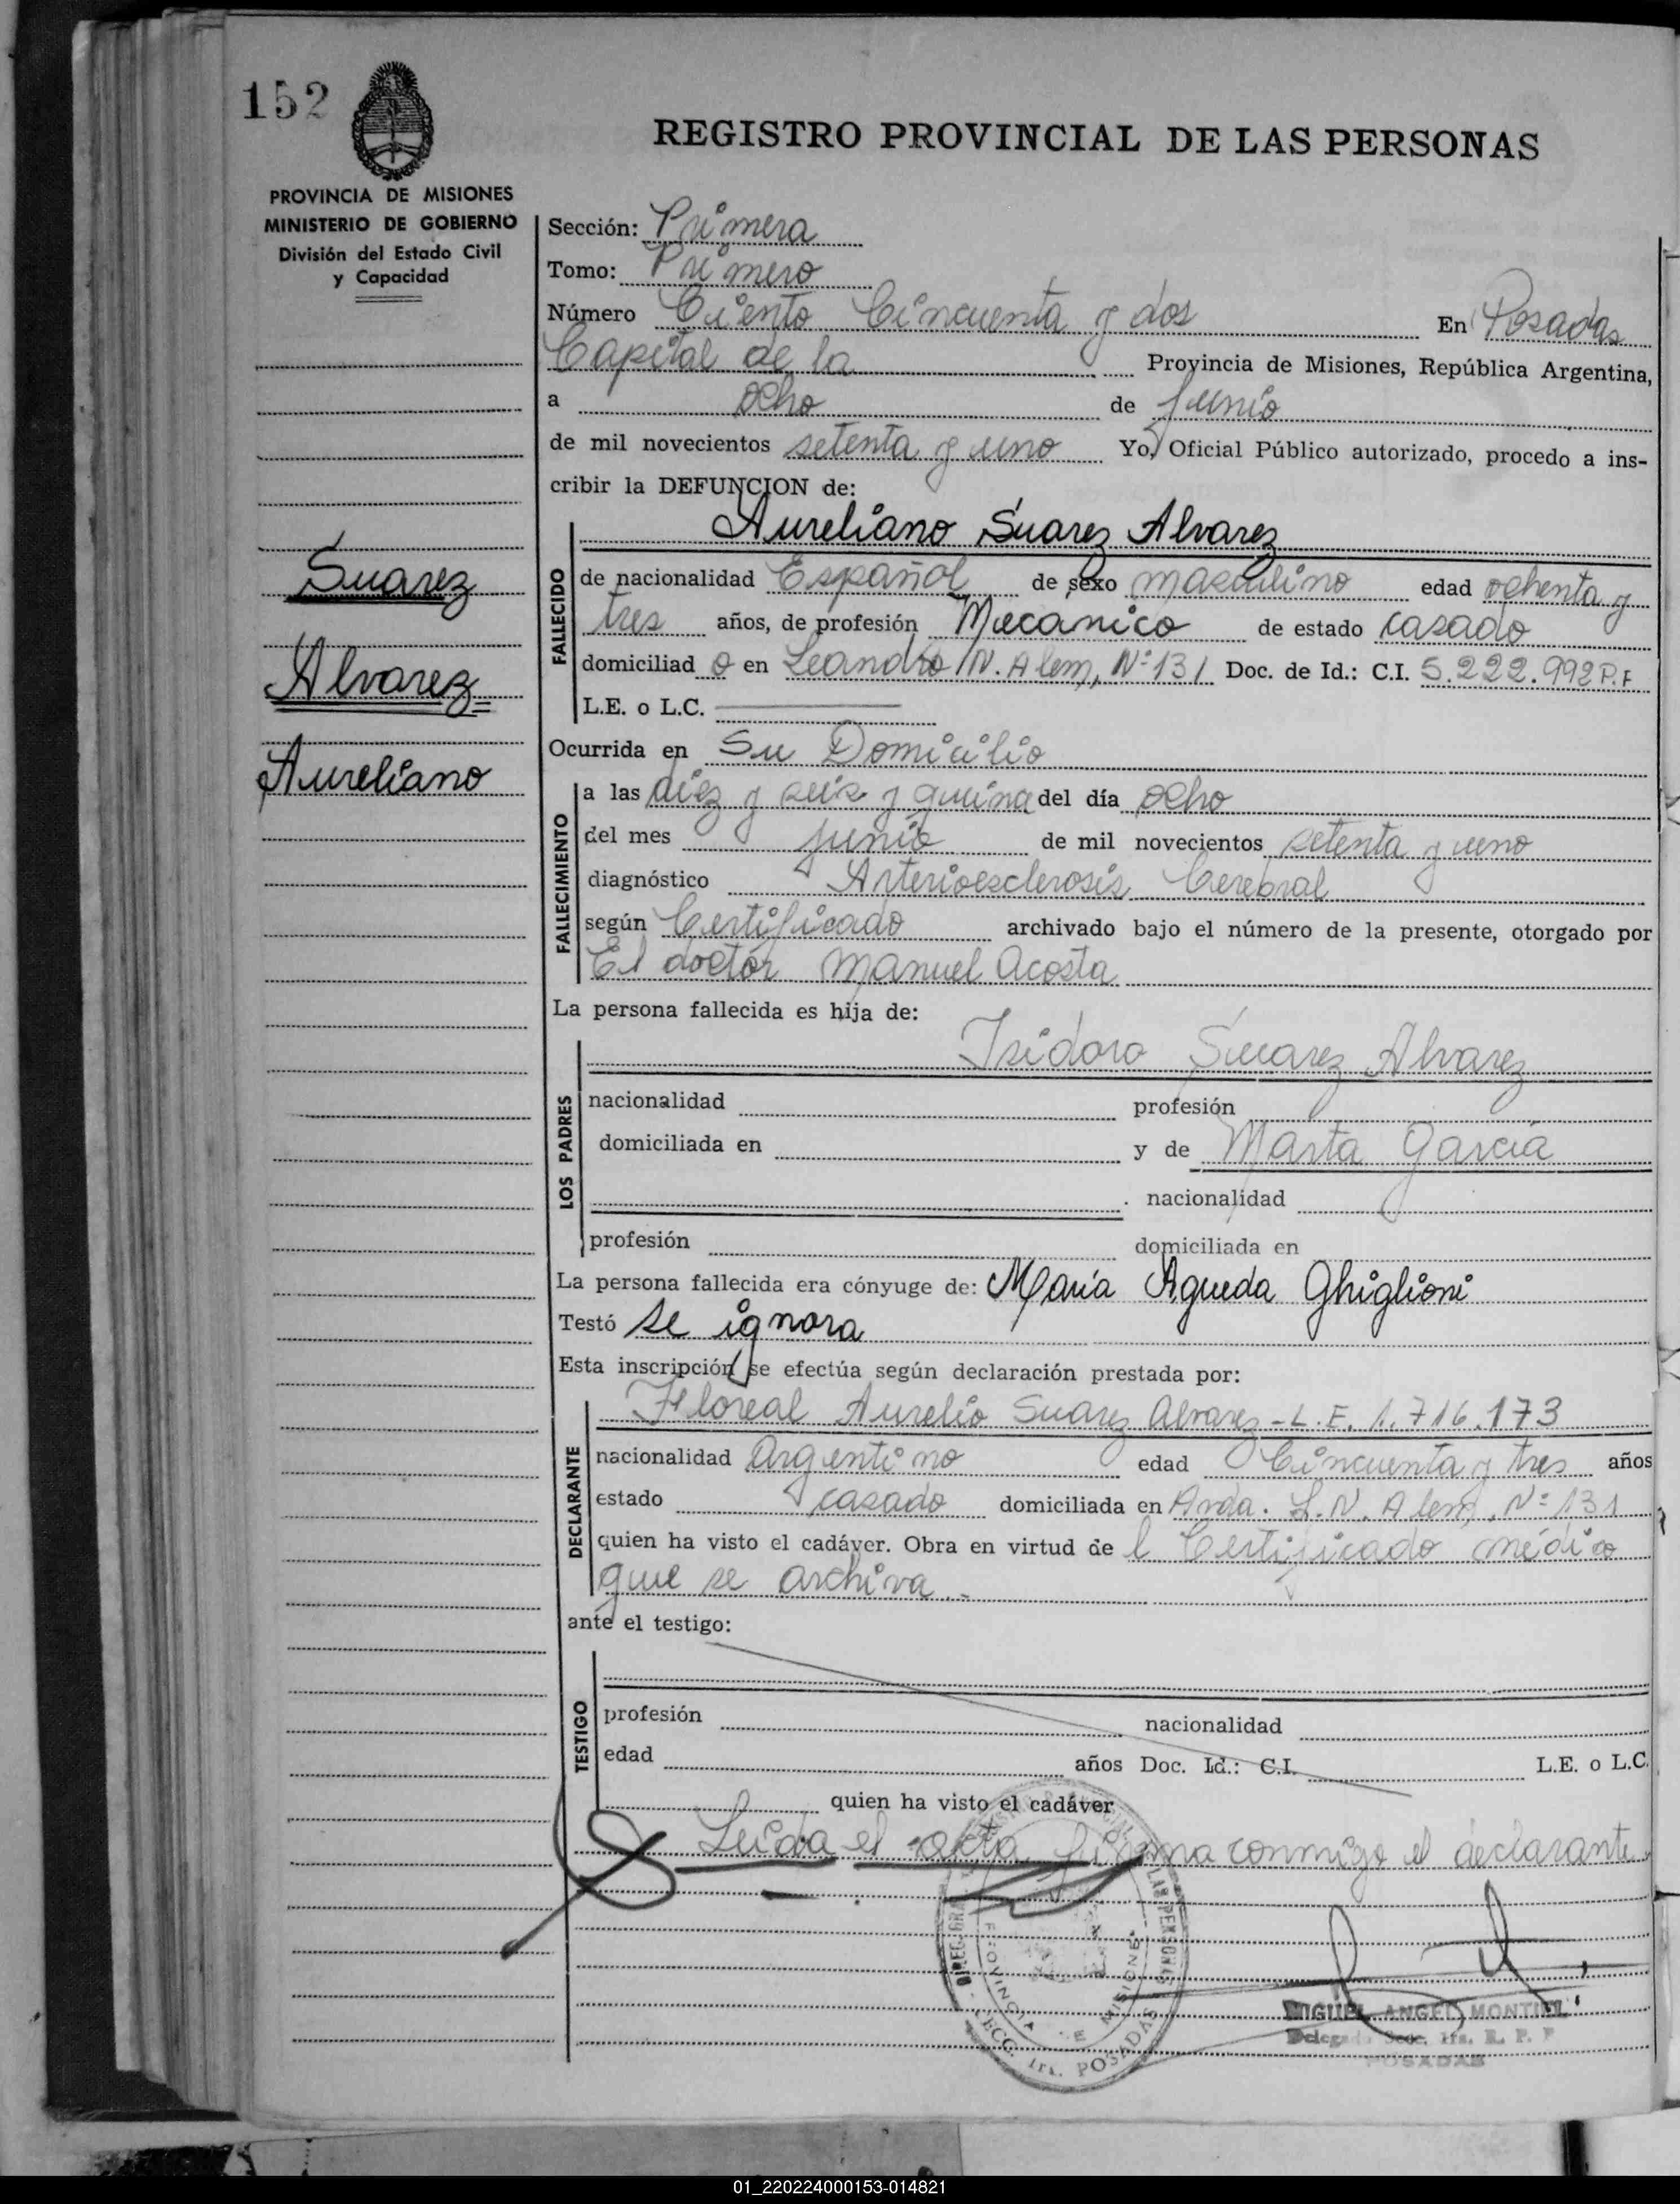 152
REGISTRO PROVINCIAL DE LAS PERSONAS
PROVINCIA DE MISIONES
MINISTERIO DE GOBIERNO
División del Estado Civil
y Capacidad
Suarez
Alvarez
Aureliano
Sección: Primera
Tomo: Primero
Número Ciento Cincuenta y dos En Posadas
Capital de la Provincia de Misiones, República Argentina,
a ocho de junio
de mil novecientos setenta y uno Yo, Oficial Público autorizado, procedo a ins-
cribir la DEFUNCION de:
Aureliano Suarez Alvarez
FALLECIDO
de nacionalidad Español de sexo masculino edad ochenta y
tres años, de profesión Mecanico de estado casado
domiciliad o en Leandro N. Alem, Nº 131 Doc. de Id.: C.I. 5.222.992 P.F
L.E. o L.C.
Ocurrida en Su Domicilio
FALLECIMIENTO
a las diez y seis y quince del día ocho
del mes junio de mil novecientos setenta y uno
diagnóstico Arterioesclerosis Cerebral
según Certificado archivado bajo el número de la presente, otorgado por
El doctor Manuel Acosta
La persona fallecida es hija de:
LOS PADRES
Isidoro Suarez Alvarez
nacionalidad profesión
domiciliada en y de Marta García
nacionalidad
profesión domiciliada en
La persona fallecida era cónyuge de: María Agueda Ghiglioni
Testó se ignora
Esta inscripción se efectúa según declaración prestada por:
DECLARANTE
Floreal Aurelio Suarez Alvarez - L.E. 1.716.173
nacionalidad Argentino edad Cincuenta y tres años
estado casado domiciliada en Avda. L.N. Alem, Nº 131
quien ha visto el cadáver. Obra en virtud de l Certificado médico
que se archiva.-
ante el testigo:
TESTIGO
profesión nacionalidad
edad años Doc. Id.: C.I. L.E. o L.C.
quien ha visto el cadáver
Leída el acta firma conmigo el declarante.
PROVINCIA DE MISIONES
SECC. 1ra. POSADAS
LAS PERSONAS
MIGUEL ANGEL MONTIEL
Delegado Secc. 1ra. R. P. P
POSADAS
01_220224000153-014821